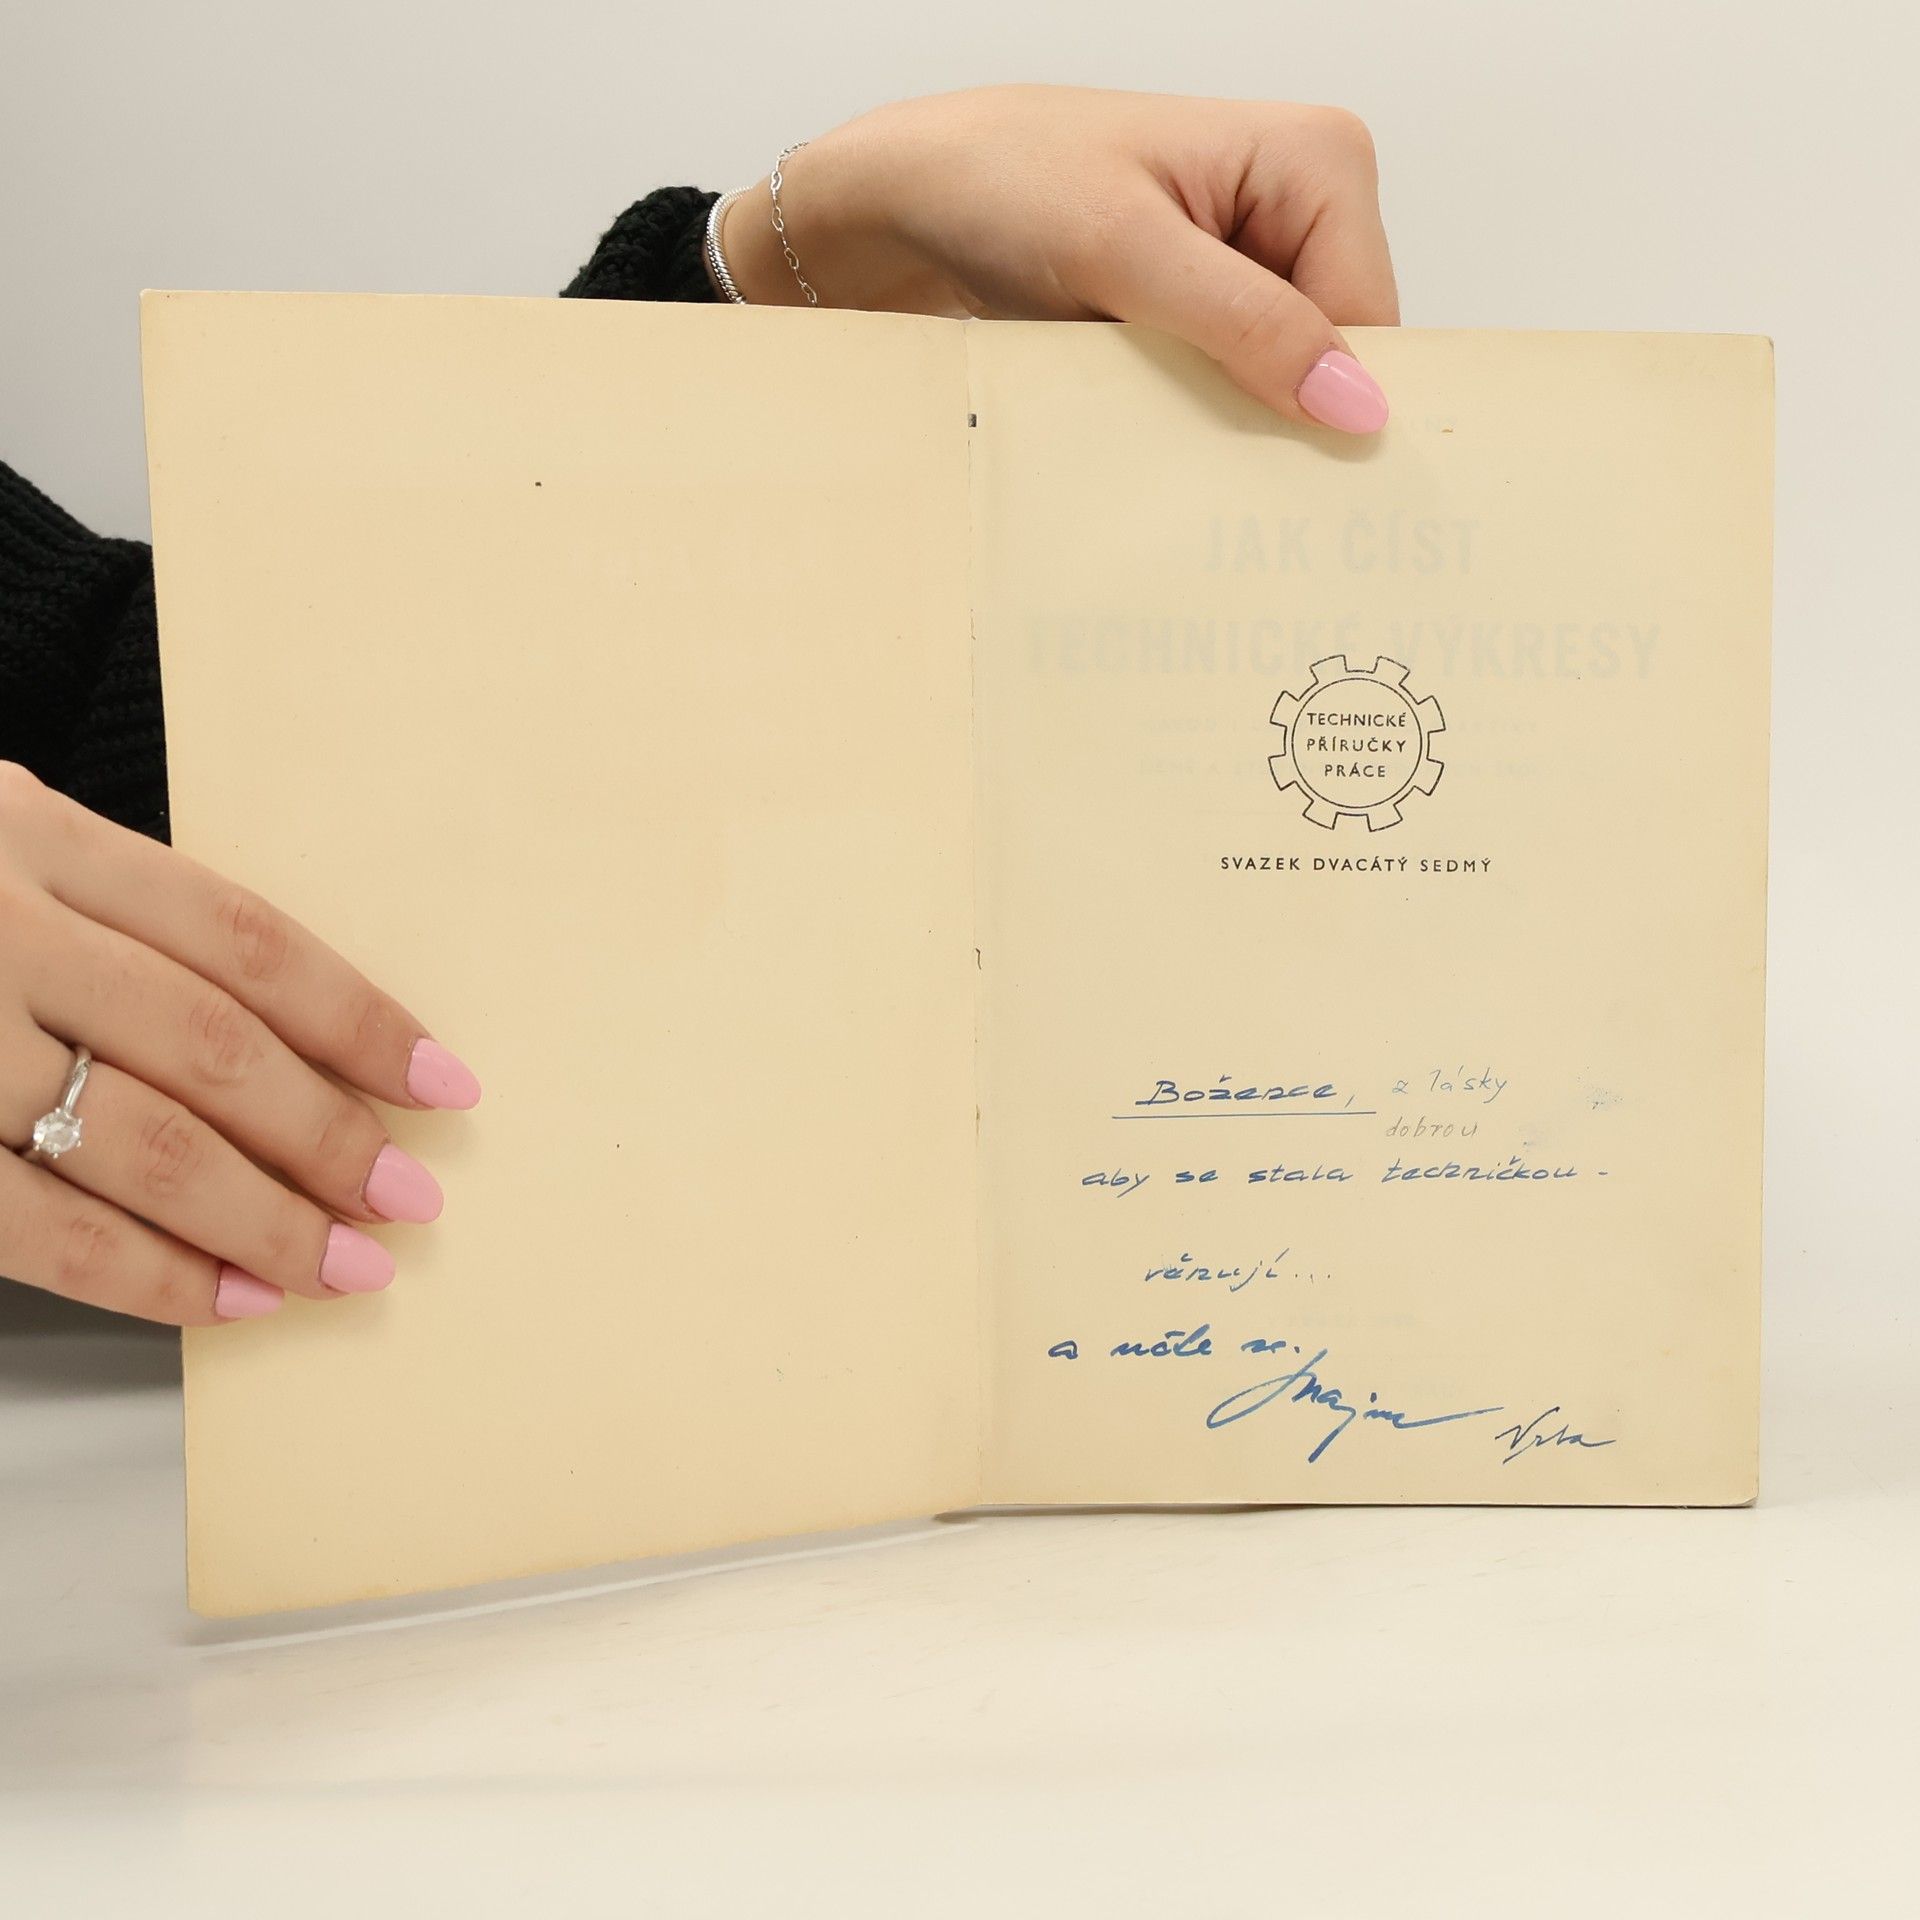 JAK ČÍST
TECHNICKÉ VÝKRESY
TECHNICKÉ
PŘÍRUČKY
PRÁCE
SVAZEK DVACÁTÝ SEDMÝ
Božence, z lásky
dobrou
aby se stala techničkou -
věnují...
a učte se.